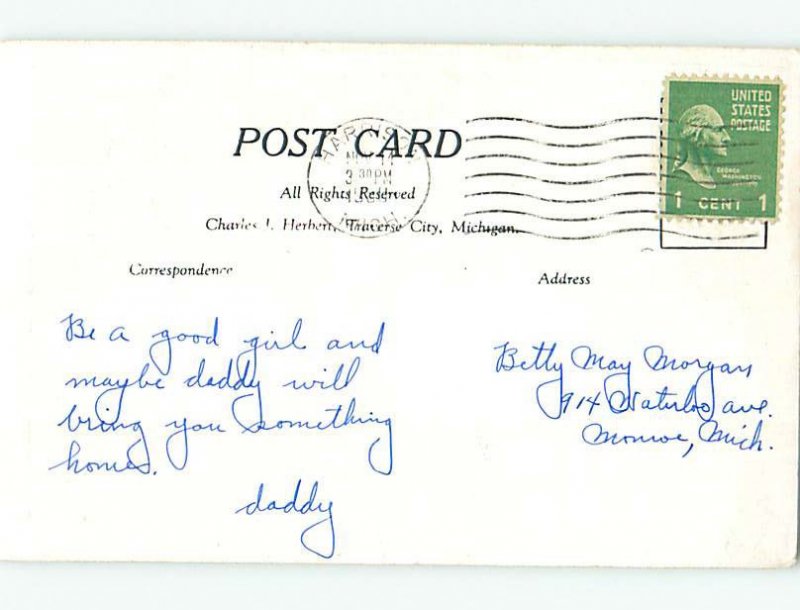 UNITED
STATES
POSTAGE
GEORGE
WASHINGTON
1 CENT 1
POST CARD
3 30 PM
MICH.
All Rights Reserved
Charles J. Herbert, Traverse City, Michigan.
Correspondence
Address
Be a good girl and
maybe daddy will
bring you something
home.
daddy
Betty May Morgan
914 Waterloo ave.
Monroe, Mich.